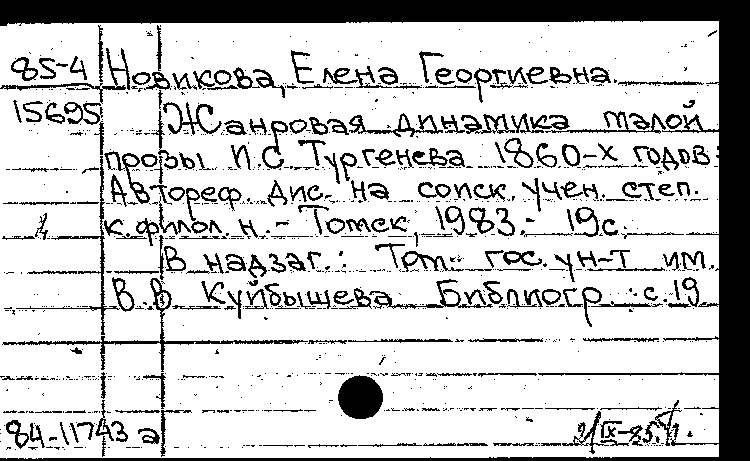 85-4 Новикова, Елена Георгиевна.
15695 Жанровая динамика малой
прозы И.С. Тургенева 1860-х годов:
Автореф. дис. на соиск. учен. степ.
к. филол. н. - Томск, 1983. - 19с.
В надзаг.: Том. гос. ун-т им.
В.В. Куйбышева Библиогр.: с.19
84-11743 а
IX-85.